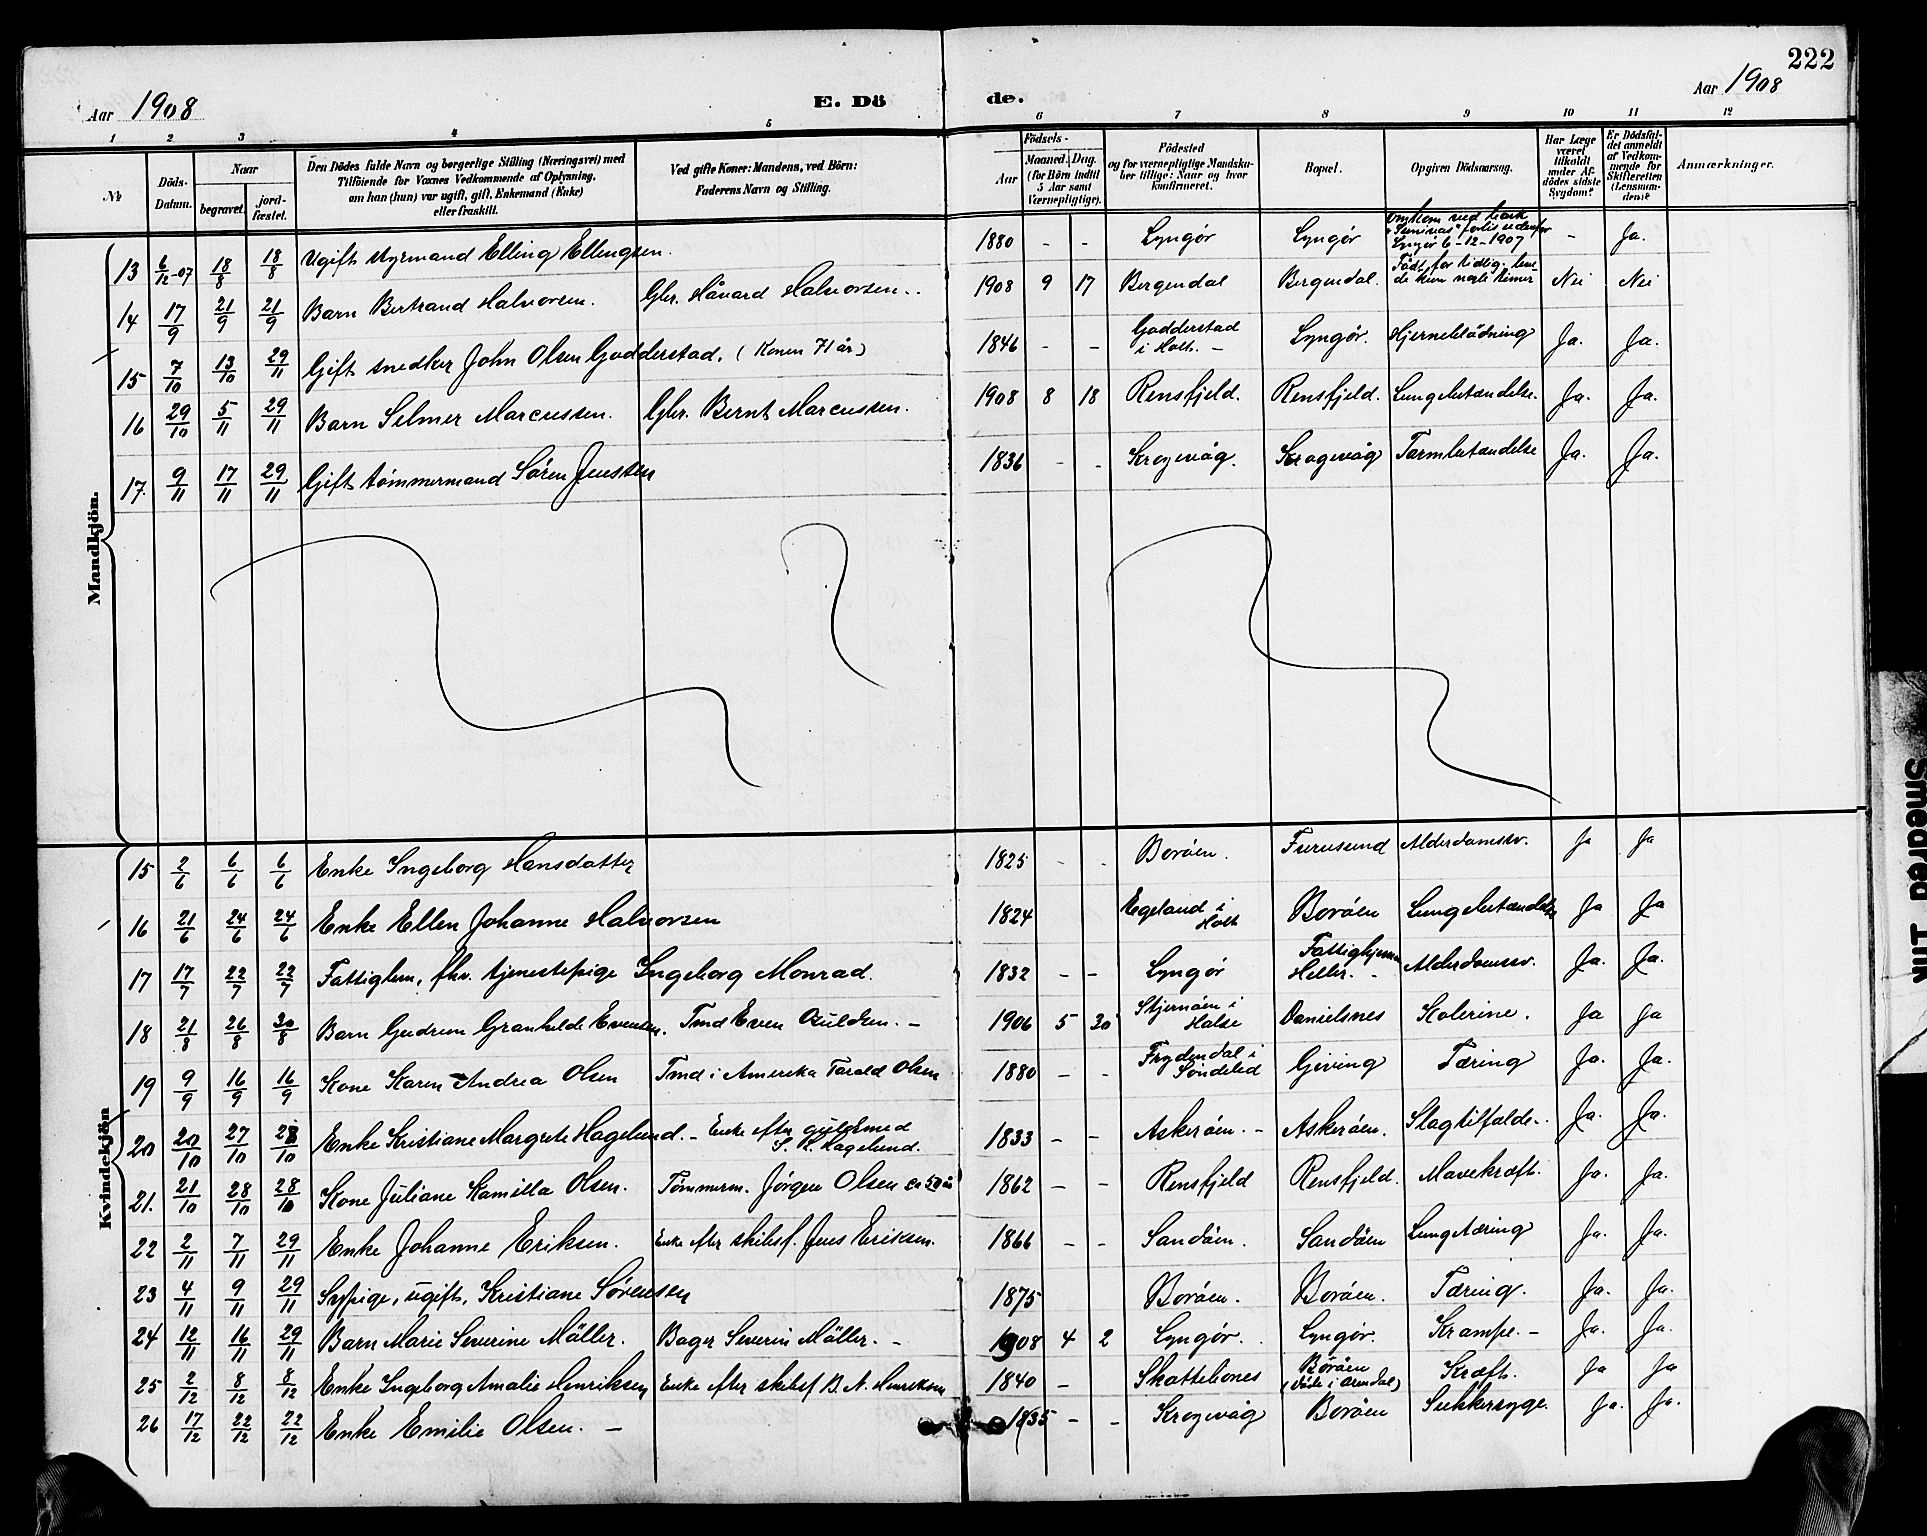 222
Aar 1908 E. Dö de. Aar 1908
1 2 3 4 5 6 7 8 9 10 11 12
Nr
Döds-Datum.
Naar
begravet.
jord-fæstet.
Den Dödes fulde Navn og borgerlige Stilling (Næringsvei) med
Tilföiende for Voxnes Vedkommende af Oplysning,
om han (hun) var ugift, gift, Enkemand (Enke)
eller fraskilt.
Ved gifte Koner: Mandens, ved Börn:
Faderens Navn og Stilling.
Födsels-
Aar
Maaned. Dag.
(for Börn indtil
5 Aar samt
Værnepligtige).
Födested
og for værnepligtige Mandska-
ber tillige: Naar og hvor
konfirmeret.
Bopæl.
Opgiven Dödsaarsag.
Har Læge
været
tilkaldt
under Af-
dödes sidste
Sygdom?
Er Dödsfal-
det anmeldt
af Vedkom-
mende for
Skifteretten
(Lensman-
den)?
Anmærkninger.
Mandkjön.
13 6/12-07 18/8 18/8 Ugift styrmand Elling Ellingsen. 1880 - - Lyngör Lyngör Omkom ved bark "Suninas" forlis udenfor Lyngör 6-12-1907 - Ja.
14 17/9 21/9 21/9 Barn Bertrand Halvorsen. Gbr. Håvard Halvorsen.. 1908 9 17 Bergendal Bergendal. Födt for tidlig. levede kun nogle timer Nei Nei
15 7/10 13/10 29/11 Gift snedker John Olsen Godderstad. (Konen 71 år) 1846 - - Godderstad i Holt. - Lyngör. Hjerneblödning Ja. Ja.
16 29/10 5/11 29/11 Barn Selmer Marcussen. Gbr. Bernt Marcussen. 1908 8 18 Rensfjeld. Rensfjeld. Lungebetændelse. Ja. Ja.
17. 9/11 17/11 29/11 Gift tömmermand Sören Jenssen 1836 - - Krogevåg. Krogevåg Tarmbetændelse Ja. Ja.
Kvindekjön
15 2/6 6/6 6/6 Enke Ingeborg Hansdatter 1825 - - Boröen. Furusund Alderdomssv. Ja Ja
16 21/6 24/6 24/6 Enke Ellen Johanne Halvorsen 1824 Egeland i Holt Boröen Lungebetændelse Ja Ja
17 17/7 22/7 22/7 Fattiglem, fhv. tjenestepige Ingeborg Monrad. 1832 - - Lyngör Fattighjemmet Heller. - Alderdomssv. Ja. Ja.
18 21/8 26/8 30/8 Barn Gudrun Granhilde Evensen. Tmd Even - 1906 5 30 Stjernöen i Halse Danielsnes Kolerine. Ja Ja
19 9/9 16/9 16/9 Kone Karen Andrea Olsen Tmd i Amerika Tarald Olsen 1880 - - Frydendal i Söndeled Gjeving Tæring Ja. Ja.
20 20/10 27/10 28/10 Enke Kristiane Margrete Hagelund. - Enke efter guldsmed S. K. Hagelund. 1833 - - Askeröen. - Askeröen. Slagtilfælde.. Ja. Ja.
21. 21/10 28/10 28/10 Kone Juliane Kamilla Olsen. Tömmerm. Jörgen Olsen ca 50 år 1862 - - Rensfjeld Rensfjeld. Mavekræft. Ja. Ja.
22 2/11 7/11 29/11 Enke Johanne Eriksen. Enke efter skibsf. Jens Eriksen. 1866 - - Sandöen. Sandöen Lungetæring Ja. Ja.
23 4/11 9/11 29/11 Sypige, ugift, Kristiane Sörensen 1875 Boröen. Boröen. Tæring. Ja. Ja.
24 12/11 16/11 29/11 Barn Marie Severine Möller. Bager Severin Möller. - 1908 4 2 Lyngör. Lyngör. Krampe. - Ja. Ja.
25 2/12 8/12 8/12 Enke Ingeborg Amalie Henriksen Enke efter skibsf B. A. Henriksen 1840 - Skottebones Boröen (döde i Arendal) Kræft. Ja Ja
26 17/12 22/12 22/12 Enke Emilie Olsen. - 1835 - - Krogevåg Boröen Sukkersyge. Ja. Ja.